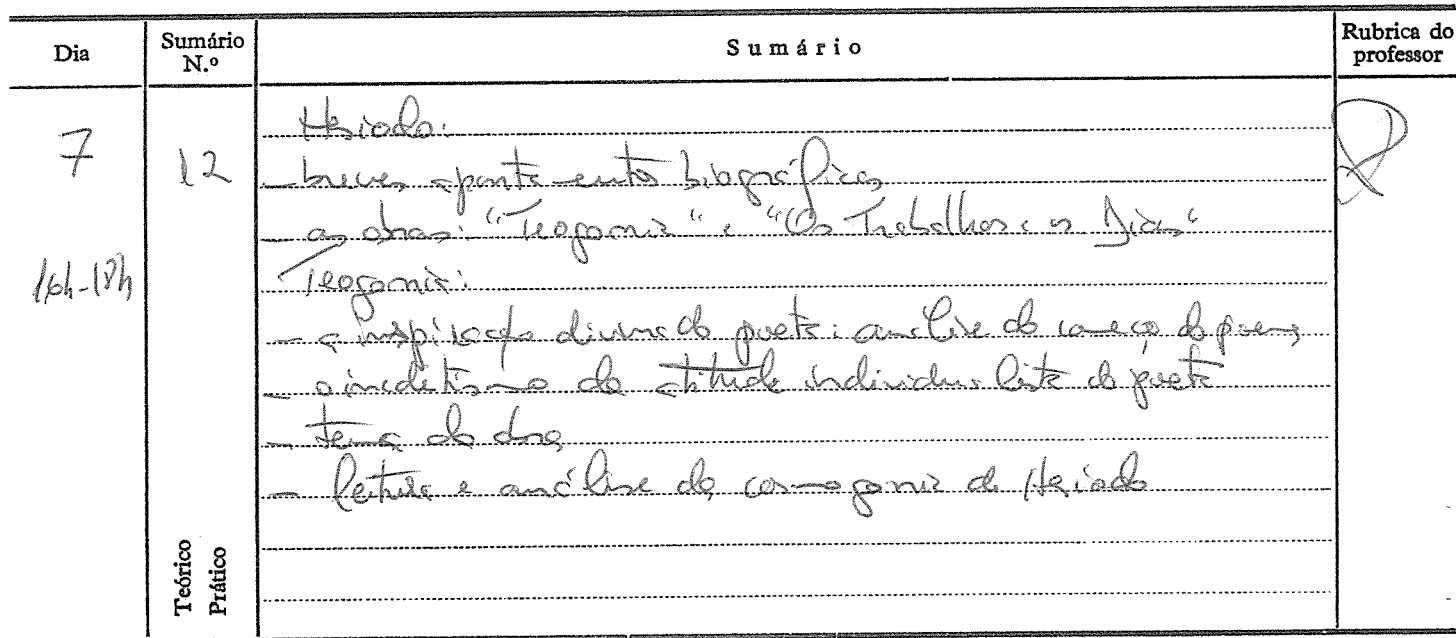 Dia
Sumário N.º
Sumário
Rubrica do professor
7
12
16h-18h
Hesíodo:
- breves apontamentos biográficos
- as obras: "Teogonia" e "Os Trabalhos e os Dias"
Teogonia:
- a inspiração divina do poeta: análise do começo do poema
- o ineditismo da atitude individualista do poeta
- tema da obra
- leitura e análise da cosmogonia de Hesíodo
Teórico
Prático